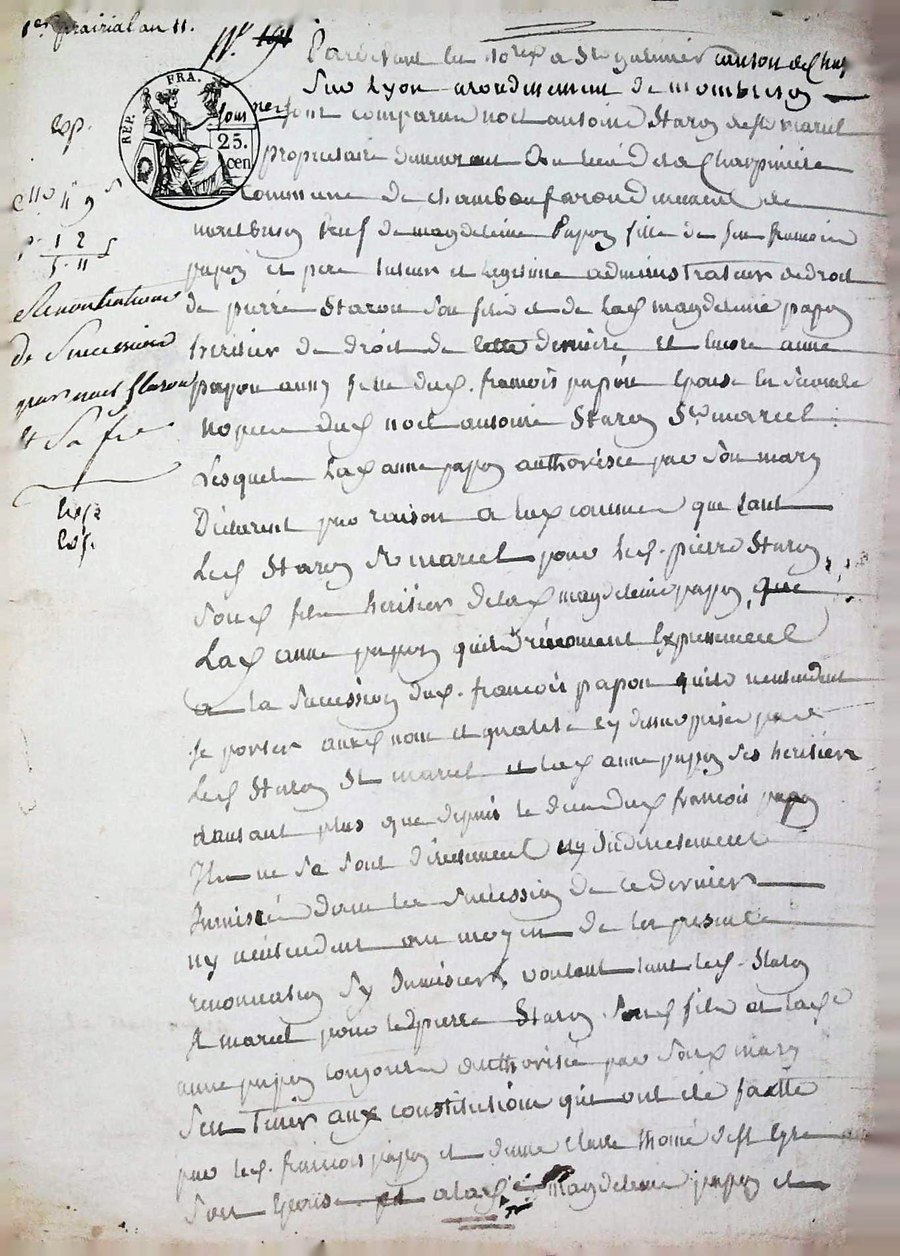 1er prairial an 11.
N°. 191
Pardevant les no.res a St galmier canton de Chaz
Sur Lyon arondissement de montbrison
RÉP. FRA.
25.
cen
sont comparus noel antoine Staron de St marcel
propriétaire demeurant au lieu de la Charpinière
Commune de Chambeuf arondissement de
montbrison veuf de magdeleine papon fille de feu francois
papon et pere tuteur et legitime administrateur de droit
de pierre Staron son fils et de lad. magdeleine papon
heritier de droit de cette derniere et encore anne
papon aussy fille dud. francois papon epouse en seconde
nopces dud noel antoine Staron St marcel
Lesquels Lad anne papon authorisée par son mary
Déclarent par raison a eux connues que tant
Led Staron St marcel pour led. pierre Staron
Soud fils heritier de lad magdeleine papon que
Lad anne papon qu'ils renoncent expressement
a la Succession dud. francois papon qu'ils n'entendent
se porter auxd nom et qualités
Led Staron St marcel et lad anne papon ses heritiers
d'autant plus que depuis le deces dud francois papon
Ils ne se sont directement ny indirectement
Immiscés dans la Succession de ce dernier
ny n'entendent au moyen de la presente
renonciation s'y immiscer, voulant tant led. Staron
St marcel pour led pierre Staron Soud fils et lad
anne papon toujours authorisée par Soud mary
s'en tenir aux constitutions qui ont été faitte
par led. francois papon et dame Claire thomé
Son epouse a lad magdeleine papon et
Renontiations
de Succession
par noel Staron
et Sa fe
Exp.
Exp.